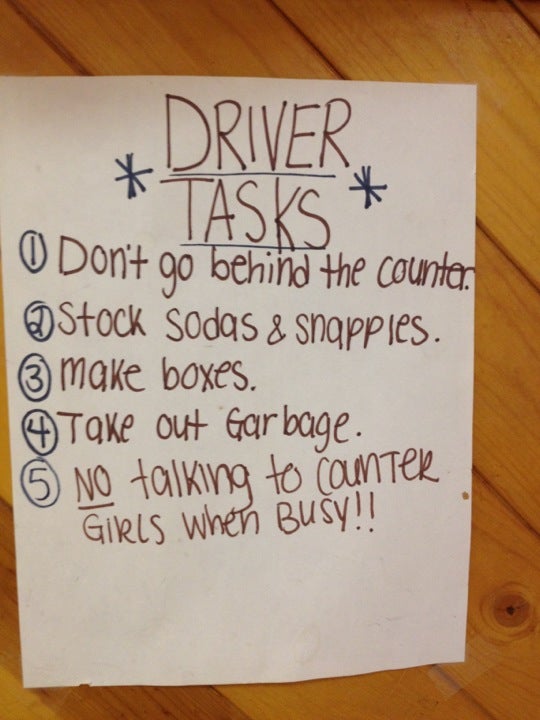 DRIVER
* TASKS *
① Don't go behind the counter.
② Stock sodas & snapples.
③ make boxes.
④ Take out Garbage.
⑤ NO talking to COUNTER
GIRLS when BUSY!!